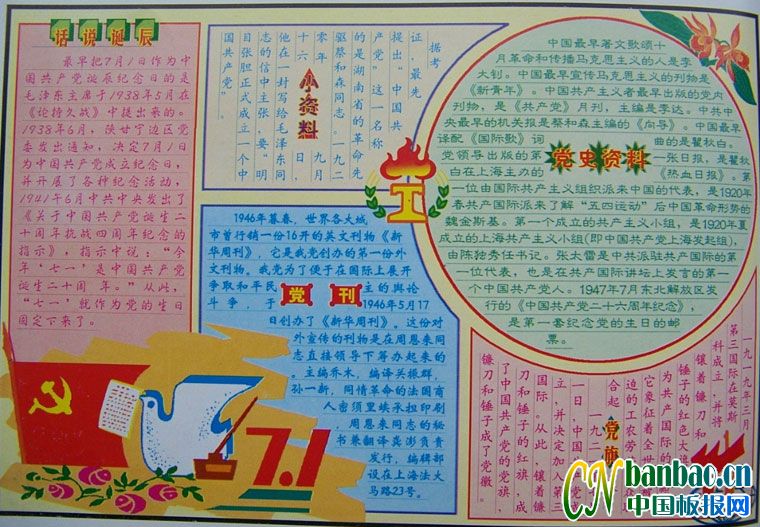 话说诞辰
最早把7月1日作为中
国共产党诞辰纪念日的是
毛泽东主席于1938年5月在
《论持久战》中提出来的。
1938年6月，陕甘宁边区党
委发出通知，决定7月1日
为中国共产党成立纪念日，
并开展了各种纪念活动，
1941年6月中共中央发出了
《关于中国共产党诞生二
十周年抗战四周年纪念的
指示》，指示中说：“今
年‘七一’是中国共产党
诞生二十周年。”从此，
“七一”就作为党的生日
固定下来了。
小资料
据考
证，最先
提出“中国共
产党”这一名称
的是湖南省的革命先
驱蔡和森同志。一九二
零年九月
十六日，
他在一封写给毛泽东同
志的信中主张，要“明
目张胆正式成立一个中
国共产党”。
党史资料
中国最早著文歌颂十
月革命和传播马克思主义的人是李
大钊。中国最早宣传马克思主义的刊物是
《新青年》。中国共产主义者最早出版的党内
刊物，是《共产党》月刊，主编是李达。中共中
央最早的机关报是蔡和森主编的《向导》。中国最早
译配《国际歌》词曲的是瞿秋白。
党领导出版的第一张日报，是瞿秋
白在上海主办的《热血日报》。第
一位由国际共产主义组织派来中国的代表，是1920年
春共产国际派来了解“五四运动”后中国革命形势的
魏金斯基。第一个成立的共产主义小组，是1920年夏
成立的上海共产主义小组(即中国共产党上海发起组)，
由陈独秀任书记。张太雷是中共派驻共产国际的第
一位代表，也是在共产国际讲坛上发言的第一
个中国共产党人。1947年7月东北解放区发
行的《中国共产党二十六周年纪念》，
是第一套纪念党的生日的邮
票。
党刊
1946年暮春，世界各大城
市首行销一份16开的英文刊物《新
华周刊》，它是我党创办的第一份外
文刊物。我党为了便于在国际上展开
争取和平民主的舆论
斗争，于1946年5月17
日创办了《新华周刊》。这份对
外宣传的刊物是在周恩来同
志直接领导下筹办起来的
。主编乔木，编译关振群，
孙一新，同情革命的法国商
人密须里埃承担印刷
，周恩来同志的秘
书兼翻译龚澎负责
发行，编辑部
设在上海法大
马路23号。
党旗
一九一九年三月，
第三国际在莫斯
科成立，并将
镶着镰刀和
锤子的红色大旗
为共产国际的
它象征着全世
边的工农劳
合起
一九二
一日，中国
立，并决定加入第三
国际。从此，镶着镰
刀和锤子的红旗，成
了中国共产党的党旗，
镰刀和锤子成了党徽。
7.1
CN banbao.cn
中国板报网